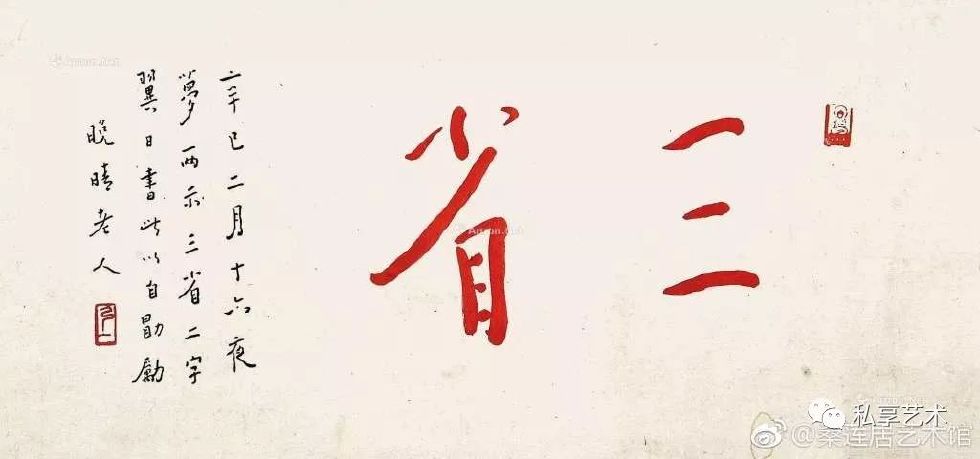 三省
辛巳二月十六夜
夢兩示三省二字
翼日書此以自勖勵
晚晴老人
私享艺术
@秦莲居艺术馆